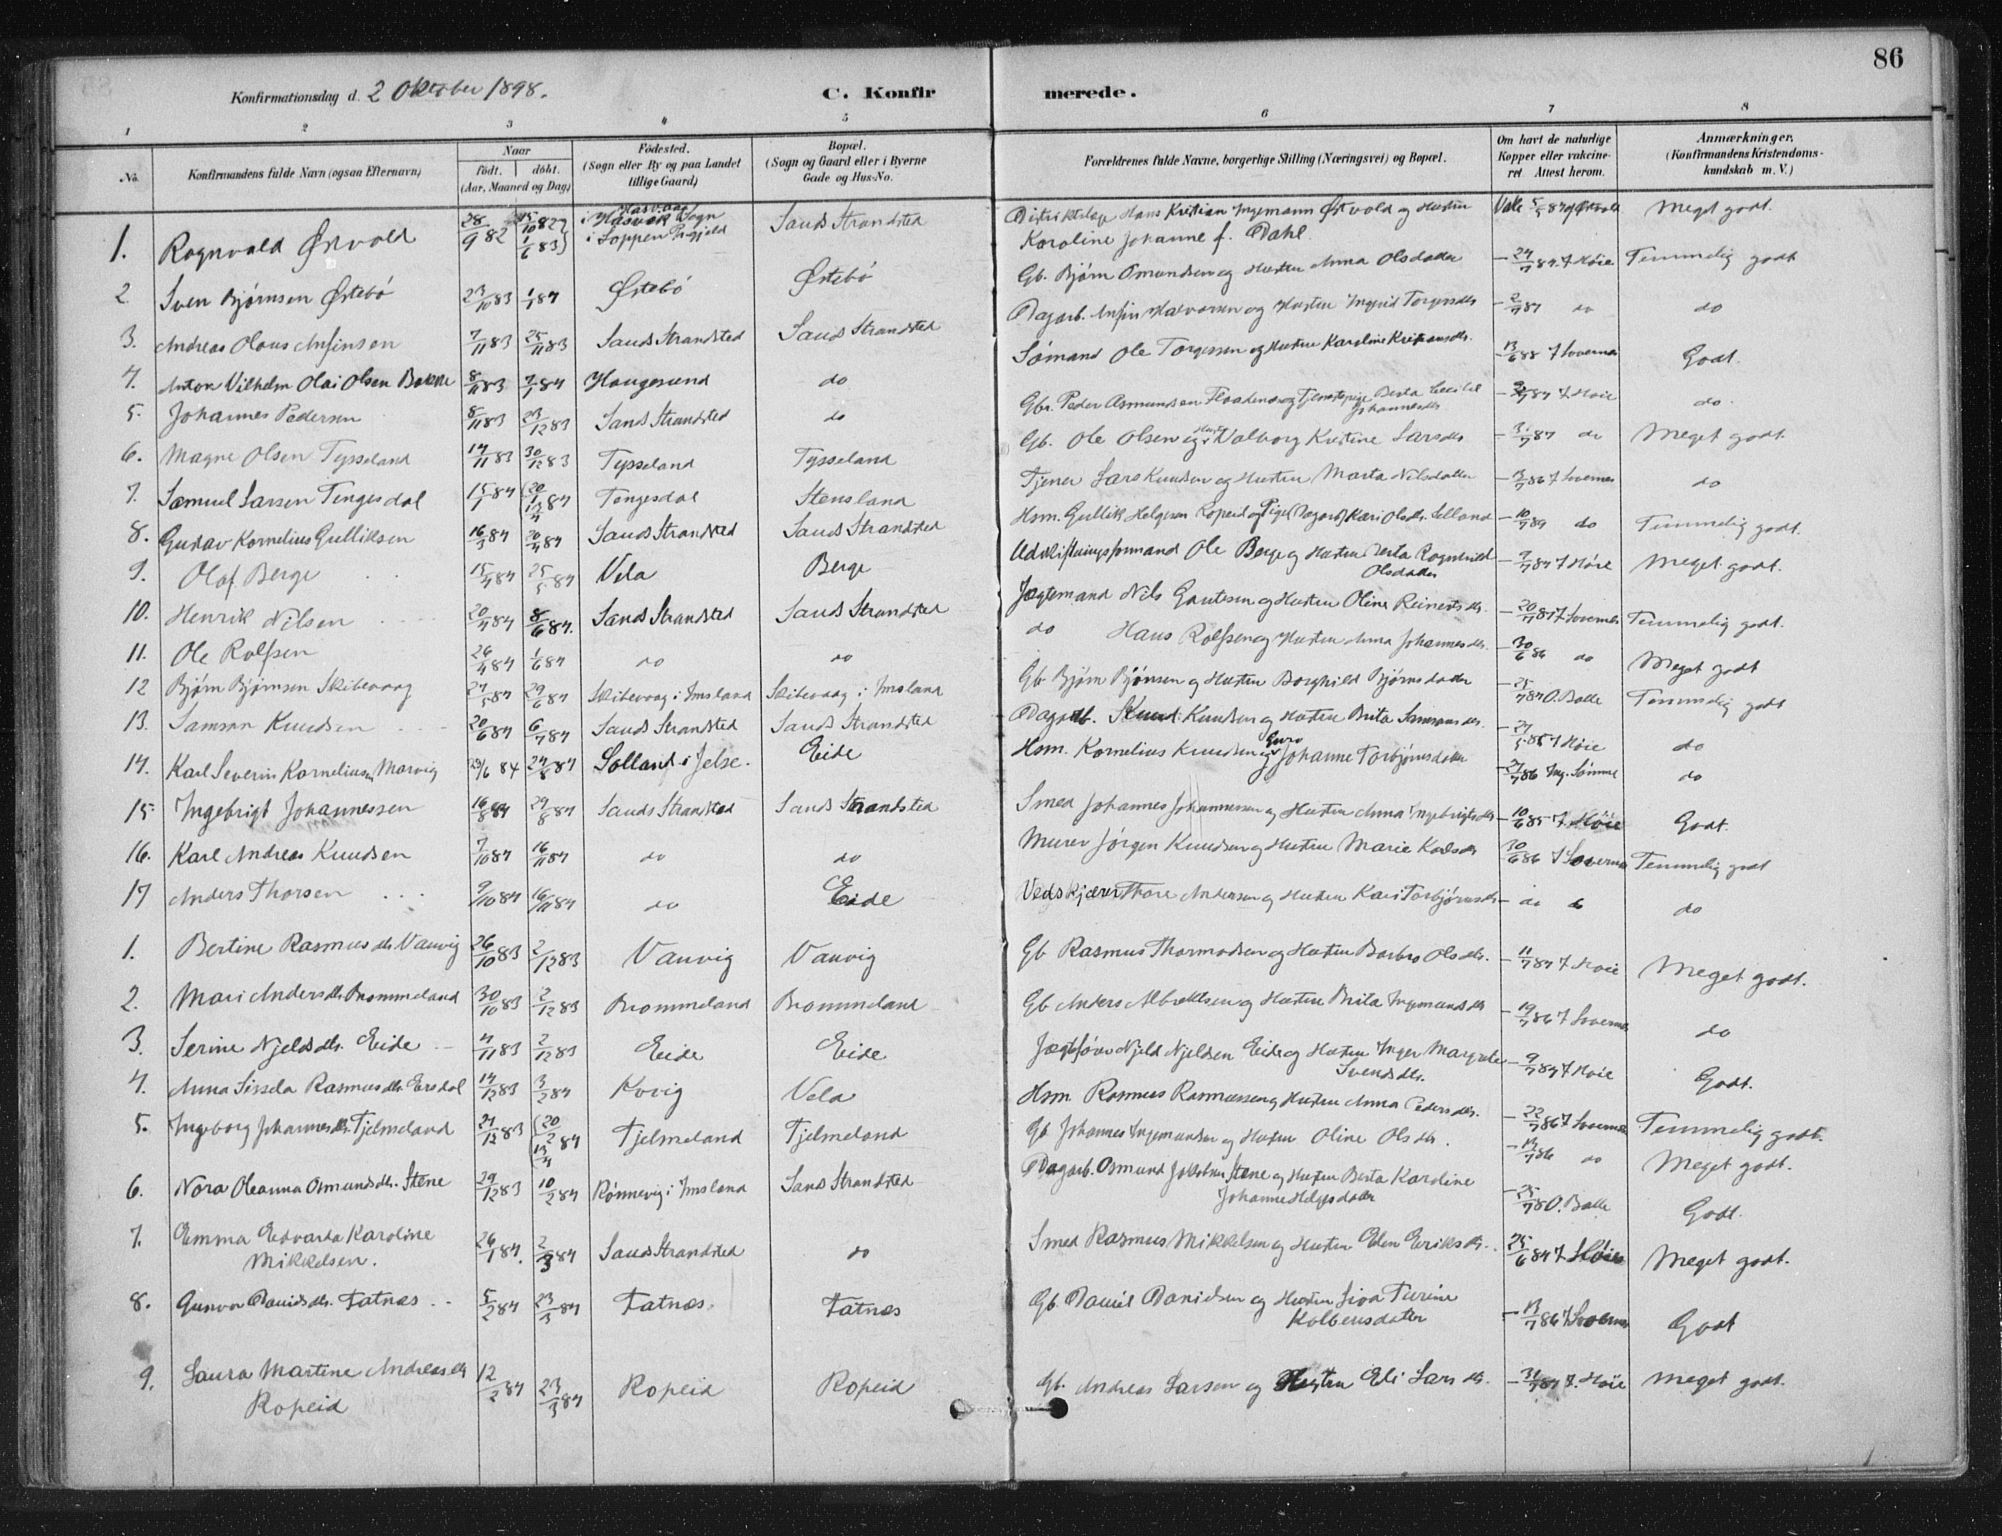 86
Konfirmationsdag d. 2 Oktober 1898. C. Konfirmerede.
1 2 3 4 5 6 7 8
No. Konfirmandens fulde Navn (ogsaa Efternavn) Naar födt. döbt. (Aar, Maaned og Dag) Födested. (Sogn eller By og paa Landet tillige Gaard) Bopæl. (Sogn og Gaard eller i Byerne Gade og Hus-No. Forældrenes fulde Navne, borgerlige Stilling (Næringsvei) og Bopæl. Om havt de naturlige Kopper eller vakcineret. Attest herom. Anmærkninger. (Konfirmandens Kristendomskundskab m. V.)
1. Ragnvald Østvold 28/9 82 15/10 82 1/6 83 i Hasvåg Sogn i Loppen Prgjeld Sands Strandsted Distriktslæge Hans Kristian Ingemann Østvold og Hustru Karoline Johanne f. Dahl. Meget godt
2 Sven Bjørnsen Østebø 23/10 83 1/1 84 Østebø Østebø Gb. Bjørn Osmundsen og Hustru Anna Olsdatter Høie Temmelig godt
3. Andreas Olaus Ansinsen 7/11 83 25/11 83 Sands Strandsted Sands Strandsted Dagarb. Halvorsen og Hustru Ingrid Torgersdtr do do
4. Anton Vilhelm Olai Olsen Bakke 8/11 83 84 Haugesund do Sømand Ole Torgessen og Hustru Karoline Kristiansdtr. Godt.
5. Johannes Pedersen 8/11 83 23/12 83 Sands Strandsted do Gbr. Peder Asmundsen og Tjenestepige Berta Johannesdtr Høie do.
6. Magne Olsen Tysseland 14/11 83 30/12 83 Tysseland Tysseland Gb. Ole Olsen og Hustru Valborg Kristine Larsdtr do Meget godt.
7. Samuel Larsen Tengesdal 15/1 84 Tengesdal Stensland Tjener Lars Knudsen og Hustru Marta Nilsdatter do
8. Gustav Kornelius Gulliksen 16/3 84 20/4 84 Sands Strandsted Sands Strandsted Hsm. Gullik Helgesen Ropeid og Pige Kari Olsdtr. do Temmelig godt.
9. Olaf Berge 15/4 84 25/5 84 Vela Berge Udskiftningsformand Ole Berge og Hustru Berta Ragnhild Olsdatter Høie Meget godt.
10. Henrik Nilsen 20/4 84 8/6 84. Sands Strandsted Sands Strandsted Jægtemand Nils Gautesen og Hustru Oline Reinertsdtr. Temmelig godt.
11. Ole Rolfsen 26/4 84 1/6 84 do do do Hans Rolfsen og Hustru Anna Johannesdtr. 30/6 86 do Meget godt
12 Bjørn Bjørnsen Skibevaag 27/5 84 29/6 84 Skibevaag i Imsland Skibevaag i Imsland Gb Bjørn Bjønsen og Hustru Borghild Bjørnsdatter O. Balle Temmelig godt
13. Samson Knudsen 20/6 84 6/7 84 Sands Strandsted Sands Strandsted Dagarb. Knud Knudsen og Hustru Brita Samsonsdtr. Høie do
14. Karl Severin Korneliussen Marvig 84 24/8 84 Solland i Jelse. Eide Hsm. Kornelius Knudsen og Guro Johanne Torbjørnsdatter Ing. Sømme do
15 Ingebrigt Johannessen 16/8 84 29/8 84 Sands Strandsted Sands Strandsted Smed Johannes Johannessen og Hustru Anna Ingebrigtsdtr 10/6 85 Høie Godt.
16. Karl Andreas Knudsen 7/10 84 16/11 84 do do Murer Jørgen Knudsen og Hustru Marie Karlsdtr Temmelig godt
17 Anders Thorsen 9/10 84 16/11 84 do Eide Tore Andersen og Hustru Kari Torbjørnsdtr do
1. Bertine Rasmusdtr. Vanvig 26/10 83 2/12 83 Vanvig Vanvig Gb Rasmus Thormodsen og Hustru Barbro Olsdtr. 11/7 84 Høie Meget godt.
2. Mari Andersdtr. Brommeland 30/10 83 2/12 83 Brommeland Brommeland Gb Anders Albrektsen og Hustru Brita Ingemundsdtr do
3. Serine Njeldsdtr. Eide 4/11 83 2/12 83 Eide Eide Njeld Njeldsen Eide og Hustru Inger Margrete Svendsdtr. Høie Godt.
4. Anna Sissela Rasmusdtr. Eersdal 14/12 83 3/2 84 Kvvig Vela Hsm Rasmus Rasmussen og Hustru Anna Pedersdtr. Temmelig godt.
5. Ingeborg Johannesdtr. Tjelmeland 27/12 83 20/2 84 Tjelmeland Tjelmeland Gb Johannes Ingemundsen og Hustru Oline Olsdtr. do Meget godt.
6. Nora Oleanna Osmundsdtr. Stene 29/12 83 10/2 84 Rønnevig i Imsland Sands Strandsted Dagarb. Osmund Jakobsen Stene og Hustru Berta Karoline Johanne Helgesdatter O. Balle Godt.
7. Emma Edvarda Karoline Mikkelsen. 26/1 84. 2/3 84 Sands Strandsted do Smed Rasmus Mikkelsen og Hustru Elen Eriksdtr. 25/6 84 Høie Meget godt.
8. Gunvor Danielsdtr. Fatnæs 5/2 84 23/3 84 Fatnæs Fatnæs Gb. Daniel Danielsen og Hustru Siva Turine Kolbensdatter Godt
9. Laura Martine Andreasdtr Ropeid 12/2 84 23/3 84 Ropeid Ropeid Gb. Andreas Larsen og Hustru Eli Larsdtr. Høie Meget godt.